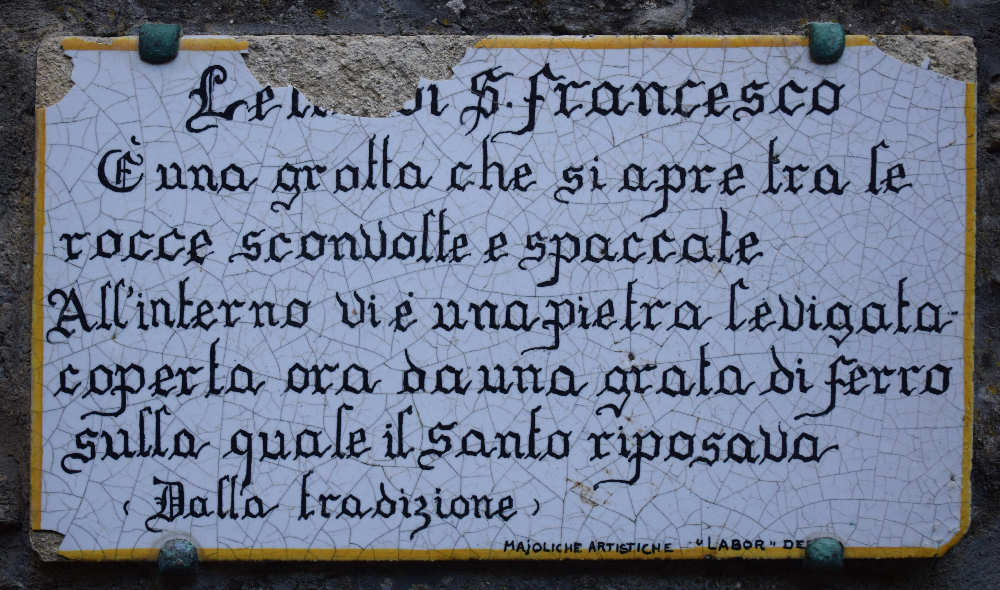 Letto di S. Francesco
È una grotta che si apre tra le
rocce sconvolte e spaccate
All'interno vi è una pietra levigata
coperta ora da una grata di ferro
sulla quale il santo riposava
(Dalla tradizione)
MAJOLICHE ARTISTICHE "LABOR"